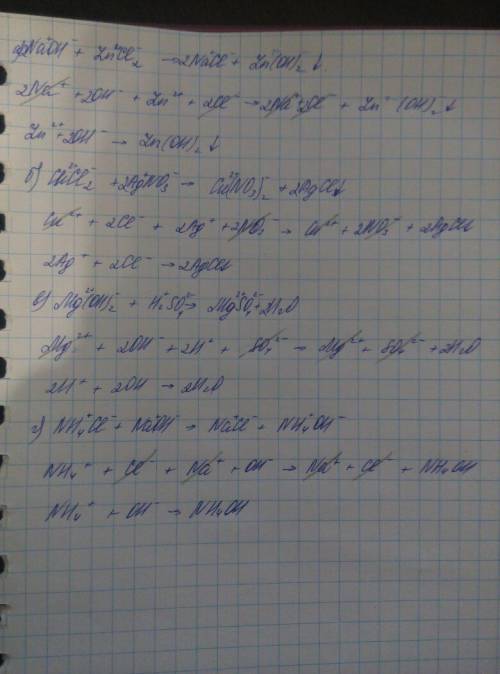 а) 2Na⁺OH⁻ + Zn²⁺Cl₂⁻ → 2Na⁺Cl⁻ + Zn(OH)₂↓
2Na⁺ + 2OH⁻ + Zn²⁺ + 2Cl⁻ → 2Na⁺ + 2Cl⁻ + Zn(OH)₂↓
Zn²⁺ + 2OH⁻ → Zn(OH)₂↓
б) Cu²⁺Cl₂⁻ + 2Ag⁺NO₃⁻ → Cu²⁺(NO₃)₂⁻ + 2AgCl↓
Cu²⁺ + 2Cl⁻ + 2Ag⁺ + 2NO₃⁻ → Cu²⁺ + 2NO₃⁻ + 2AgCl↓
2Ag⁺ + 2Cl⁻ → 2AgCl↓
в) Mg²⁺(OH)₂⁻ + H₂⁺SO₄²⁻ → Mg²⁺SO₄²⁻ + 2H₂O
Mg²⁺ + 2OH⁻ + 2H⁺ + SO₄²⁻ → Mg²⁺ + SO₄²⁻ + 2H₂O
2H⁺ + 2OH → 2H₂O
г) NH₄⁺Cl⁻ + Na⁺OH⁻ → Na⁺Cl⁻ + NH₄⁺OH⁻
NH₄⁺ + Cl⁻ + Na⁺ + OH⁻ → Na⁺ + Cl⁻ + NH₄OH
NH₄⁺ + OH⁻ → NH₄OH